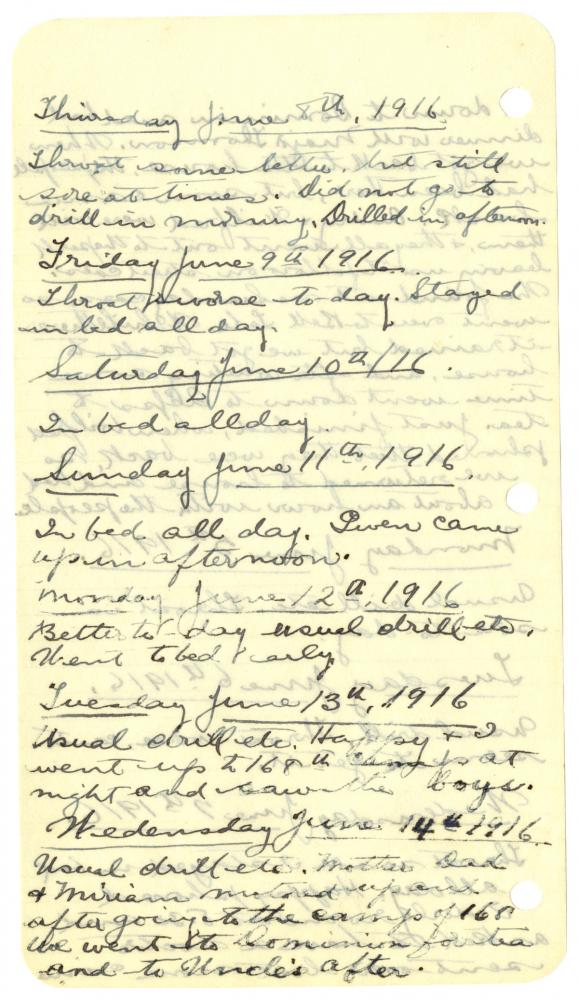 Thursday June 8th, 1916.
Throat some better but still
sore at times. Did not go to
drill in morning. Drilled in afternoon.
Friday June 9th 1916.
Throat worse to-day. Stayed
in bed all day.
Saturday June 10th/16.
In bed all day.
Sunday June 11th, 1916.
In bed all day. came
up in afternoon.
Monday June 12th, 1916
Better to-day usual drill etc.
Went to bed early.
Tuesday June 13th, 1916
Usual drill etc. Happy & I
went up to 168th camp at
night and saw the boys.
Wedensday June 14th 1916.
Usual drill etc. Mother Dad
& Miriam motored up and
after going to the camp of 168
we went to Dominion for tea
and to Uncle's after.